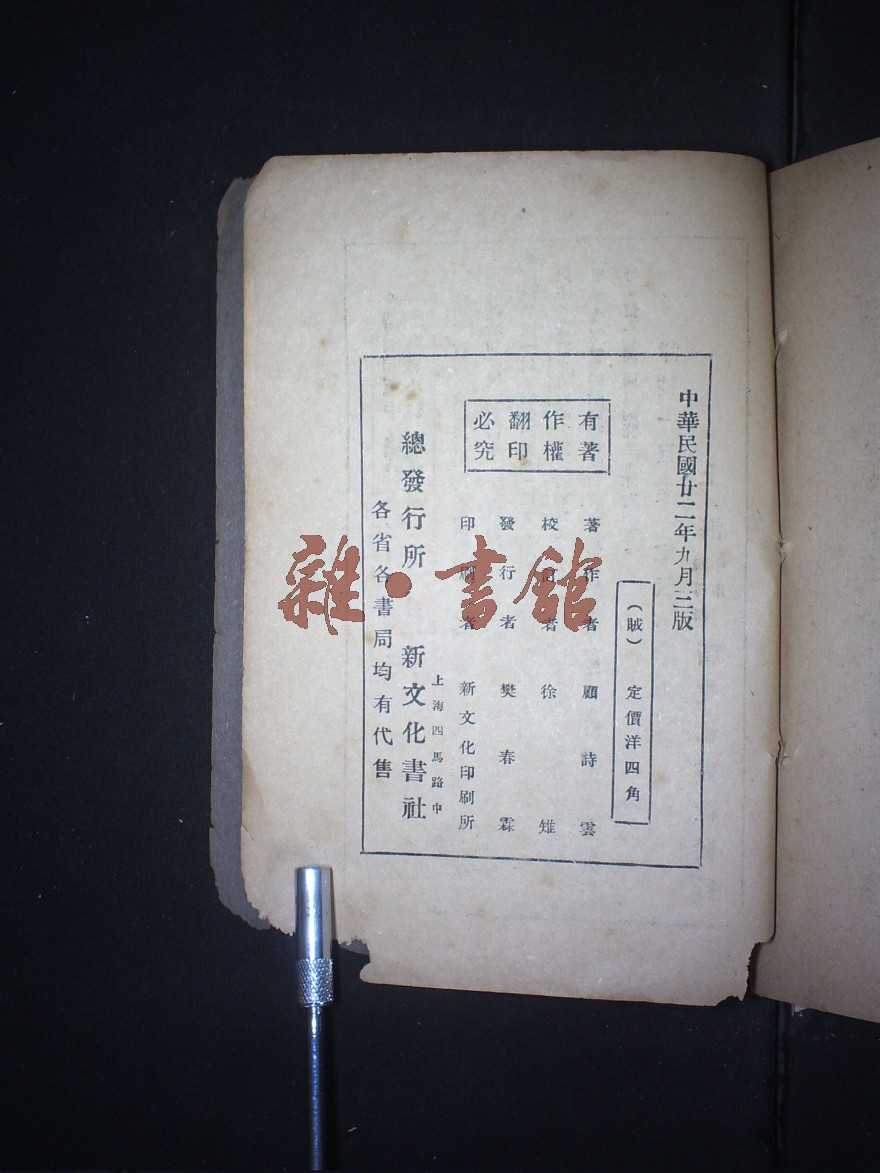 中華民國廿二年九月三版
（賊）　定價洋四角
有著
作權
翻印
必究
著作者　顧詩雲
校訂者　徐雉
發行者　樊春霖
印刷者　新文化印刷所
上海四馬路中
總發行所　新文化書社
各省各書局均有代售
雜·書館